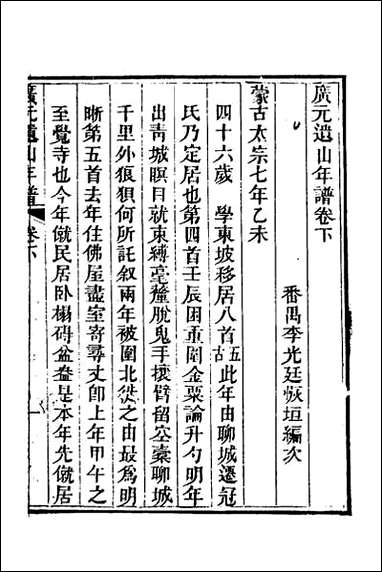 廣元遺山年譜卷下
番禺李光廷恢垣編次
蒙古太宗七年乙未
四十六歲　學東坡移居八首五古此年由聊城遷冠
氏乃定居也第四首壬辰困重圍金粟論升勺明年
出靑城瞑目就束縛毫釐脫鬼手攘臂留空橐聊城
千里外狼狽何所託叙兩年被圍北徙之由最爲明
晰第五首去年住佛屋盡室寄尋丈卽上年甲午之
至覺寺也今年僦民居卧榻碍盆盎是本年先僦居
廣元遺山年譜
卷下
一